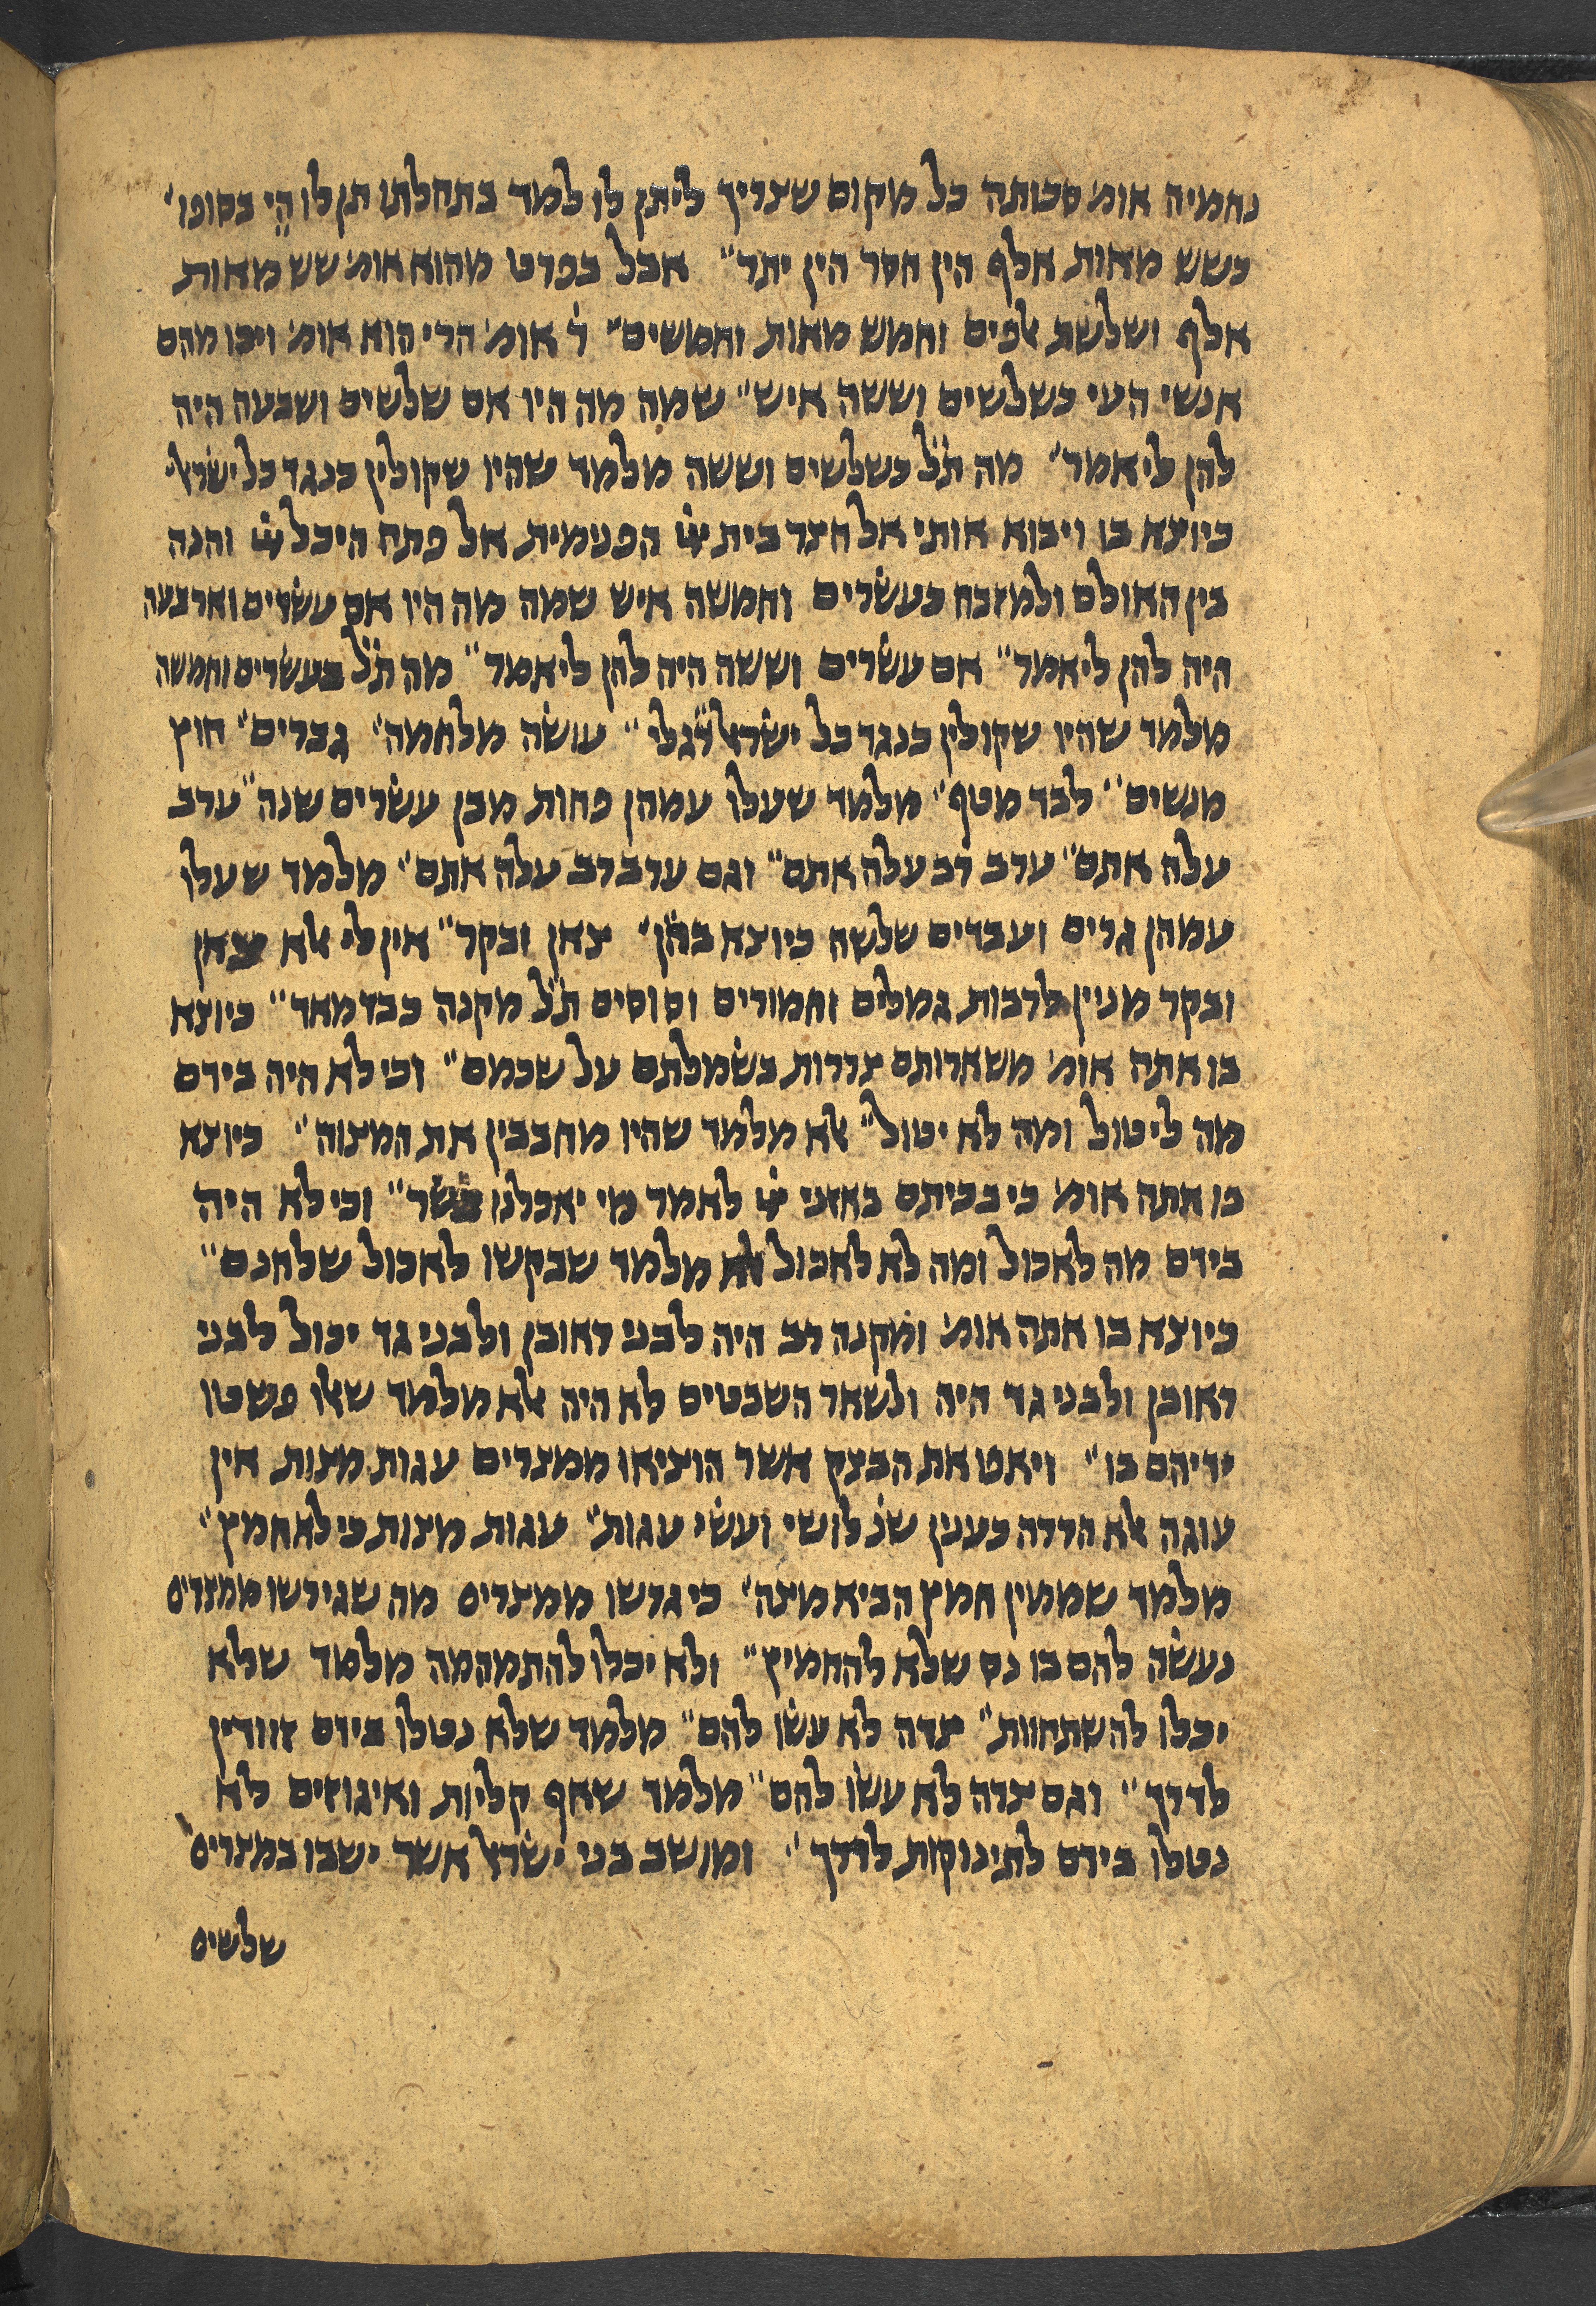 נחמיה אומ׳ סכותה כל מקום שצריך ליתן לו למד בתחלתו תן לו הֵי בסופו״
כשש מאות אלף הין חסר הין יתר״ אבל בפרט מהוא אומ׳ שש מאות
אלף ושלשת אלפים וחמש מאות וחמשים״ ר׳ אומ׳ הרי הוא אומ׳ ויכו מהם
אנשי העי כשלשים וששה איש״ שמה מה היו אם שלשים ושבעה היה
להן ליאמר״ מה תֹ״ל כשלשים וששה מלמד שהיו שקולין כנגד כל ישראל
כיוצא בו ויבוא אותי אל חצר בית יֹיֹ הפנימית אל פתח היכל יֹיֹ והנה
בין האולם ולמזבח כעשרים וחמשה איש שמה מה היו אם עשרים וארבעה
היה להן ליאמר״ אם עשרים וששה היה להן ליאמר״ מה תֹ״ל כעשרים וחמשה
מלמד שהיו שקולין כנגד כל ישראל רגלי״ עושה מלחמה״ גברים״ חוץ
מנשים״ לבד מטף״ מלמד שעלו עמהן פחות מבן עשרים שנה״ ערב
עלה אתם״ ערב רב עלה אתם״ וגם ערב רב עלה אתם״ מלמד שעלו
עמהן גרים ועבדים שלשה כיוצא בהן״ צאן ובקר״ אין לי אלא צאן
ובקר מנין לרבות גמלים וחמורים וסוסים תֹ״ל מקנה כבד מאד״ כיוצא
בו אתה אומ׳ משארותם צררות בשמלתם על שכמם״ וכי לא היה בידם
מה ליטול ומה לא יטול״ אלא מלמד שהיו מחבבין את המצוה״ כיוצא
בו אתה אומ׳ כי בכיתם באזני יֹיֹ לאמר מי יאכלנו בשר״ וכי לא היה
בידם מה לאכול ומה לא לאכול אלא מלמד שבקשו לאכול שלחנם״
כיוצא בו אתה אומ׳ ומקנה רב היה לבני ראובן ולבני גד יכול לבני
ראובן ולבני גד היה ולשאר השבטים לא היה אלא מלמד שאלו פשטו
ידיהם בו״ ויאפו את הבצק אשר הוציאו ממצרים עגות מצות אין
עוגה אלא הררה כענין שנ׳ לושי ועשי עגות״ עגות מצות כי לא חמץ״
מלמד שממין חמץ הביא מצה״ כי גרשו ממצרים מה שגירשו ממצרים
נעשה להם בו נס שלא להחמיץ״ ולא יכלו להתמהמה מלמד שלא
יכלו להשתהוות״ צדה לא עשו להם״ מלמד שלא נטלו בידם זוודין
לדרך״ וגם צדה לא עשו להם״ מלמד שאף קליות ואיגוזים לא
נטלו בידם לתינוקות לדרך״ ומושב בני ישראל אשר ישבו במצרים
שלשים